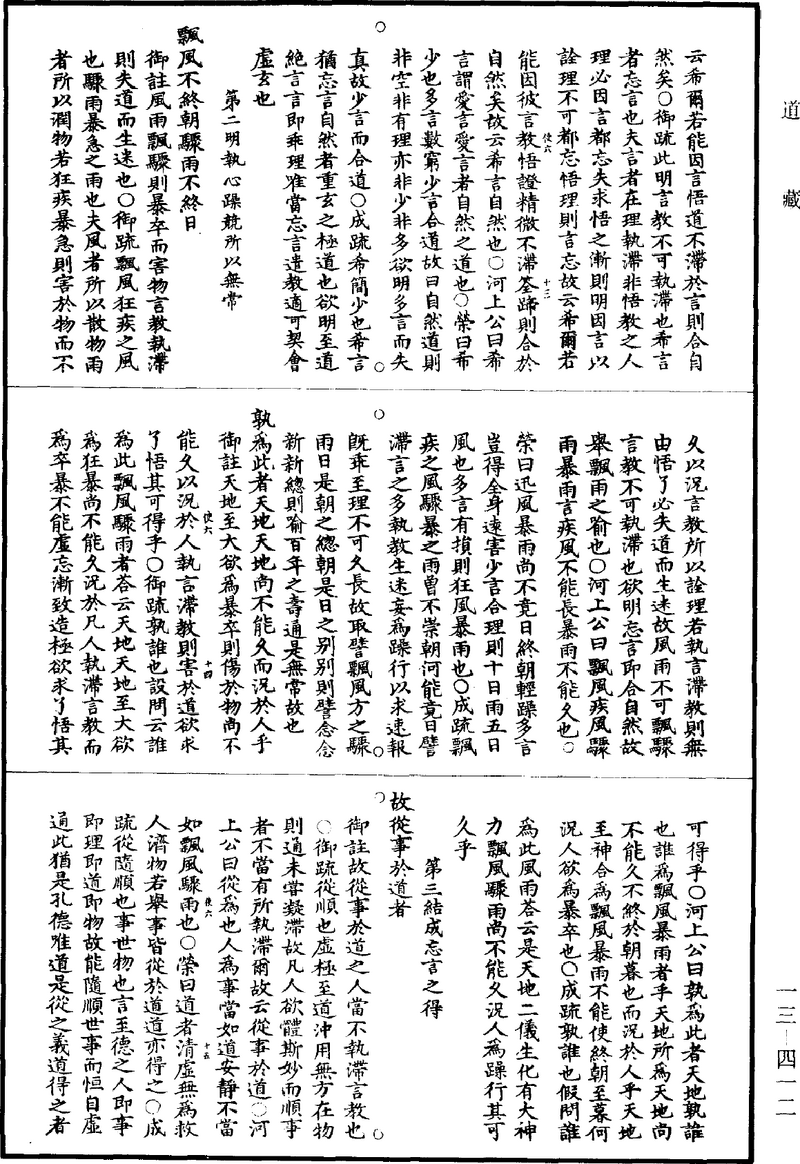 道藏
云希爾若能因言悟道不滯於言則合自
然矣○御疏此明言教不可執滯也希言
者忘言也夫言者在理執滯非悟教之人
理必因言都忘失求悟之漸則明因言以
詮理不可都忘悟理則言忘故云希爾若
能因彼言教悟證精微不滯筌蹄則合於
使六
十三
自然矣故云希言自然也○河上公曰希
言謂愛言愛言者自然之道也○榮曰希
少也多言數窮少言合道故曰自然道則
非空非有理亦非少非多欲明多言而失
真故少言而合道○成疏希簡少也希言
猶忘言自然者重玄之極道也欲明至道
絕言言即乖理唯當忘言遣教適可契會
虛玄也
第二明執心躁競所以無常
飄風不終朝驟雨不終日
御註風雨飄驟則暴卒而害物言教執滯
則失道而生迷也○御疏飄風狂疾之風
也驟雨暴急之雨也夫風者所以散物雨
者所以潤物若狂疾暴急則害於物而不
久以況言教所以詮理若執言滯教則無
由悟了必失道而生迷故風雨不可飄驟
言教不可執滯也欲明忘言即合自然故
舉飄風之喻也○河上公曰飄風疾風驟
雨暴雨言疾風不能長暴雨不能久也○
榮曰迅風暴雨尚不竟日終朝輕躁多言
豈得全身遠害少言合理則十日雨五日
風也多言有損則狂風暴雨也○成疏飄
疾之風驟暴之雨曾不崇朝何能竟日譬
滯言之多執教生迷妄為躁行以求速報
既乖至理不可久長故取譬飄風方之驟
雨日是朝之總朝是日之別別則譬念念
新新總則喻百年之壽通是無常故也
孰為此者天地天地尚不能久而況於人乎
御註天地至大欲為暴卒則傷於物尚不
能久以況於人執言滯教則害於道欲求
使六
十四
了悟其可得乎○御疏孰誰也設問云誰
為此飄風驟雨者荅云天地天地至大欲
為狂暴尚不能久況於凡人執滯言教而
為卒暴不能虛忘漸致造極欲求了悟其
可得乎○河上公曰孰為此者天地孰誰
也誰為飄風暴雨者乎天地所為天地尚
不能久不終於朝暮也而況於人乎天地
至神合為飄風暴雨不能使終朝至暮何
況人欲為暴卒也○成疏孰誰也假問誰
為此風雨荅云是天地二儀生化有大神
力飄風驟雨尚不能久況人為躁行其可
久乎
第三結成忘言之得
故從事於道者
御註故從事於道之人當不執滯言教也
○御疏從順也虛極至道沖用無方在物
則通未嘗凝滯故凡人欲體斯妙而順事
者不當有所執滯爾故云從事於道○河
上公曰從為也人為事當如道安靜不當
如飄風驟雨也○榮曰道者清虛無為救
使六
十五
人濟物若舉事皆從於道道亦得之○成
疏從隨順也事世物也言至德之人即事
即理即道即物故能隨順世事而恒自虛
通此猶是孔德唯道是從之義道得之者
一三—四一二